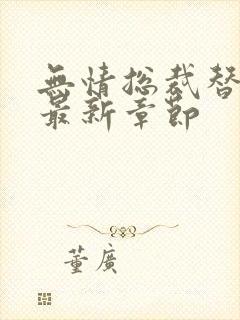 無情總裁替
最新章節
董廣